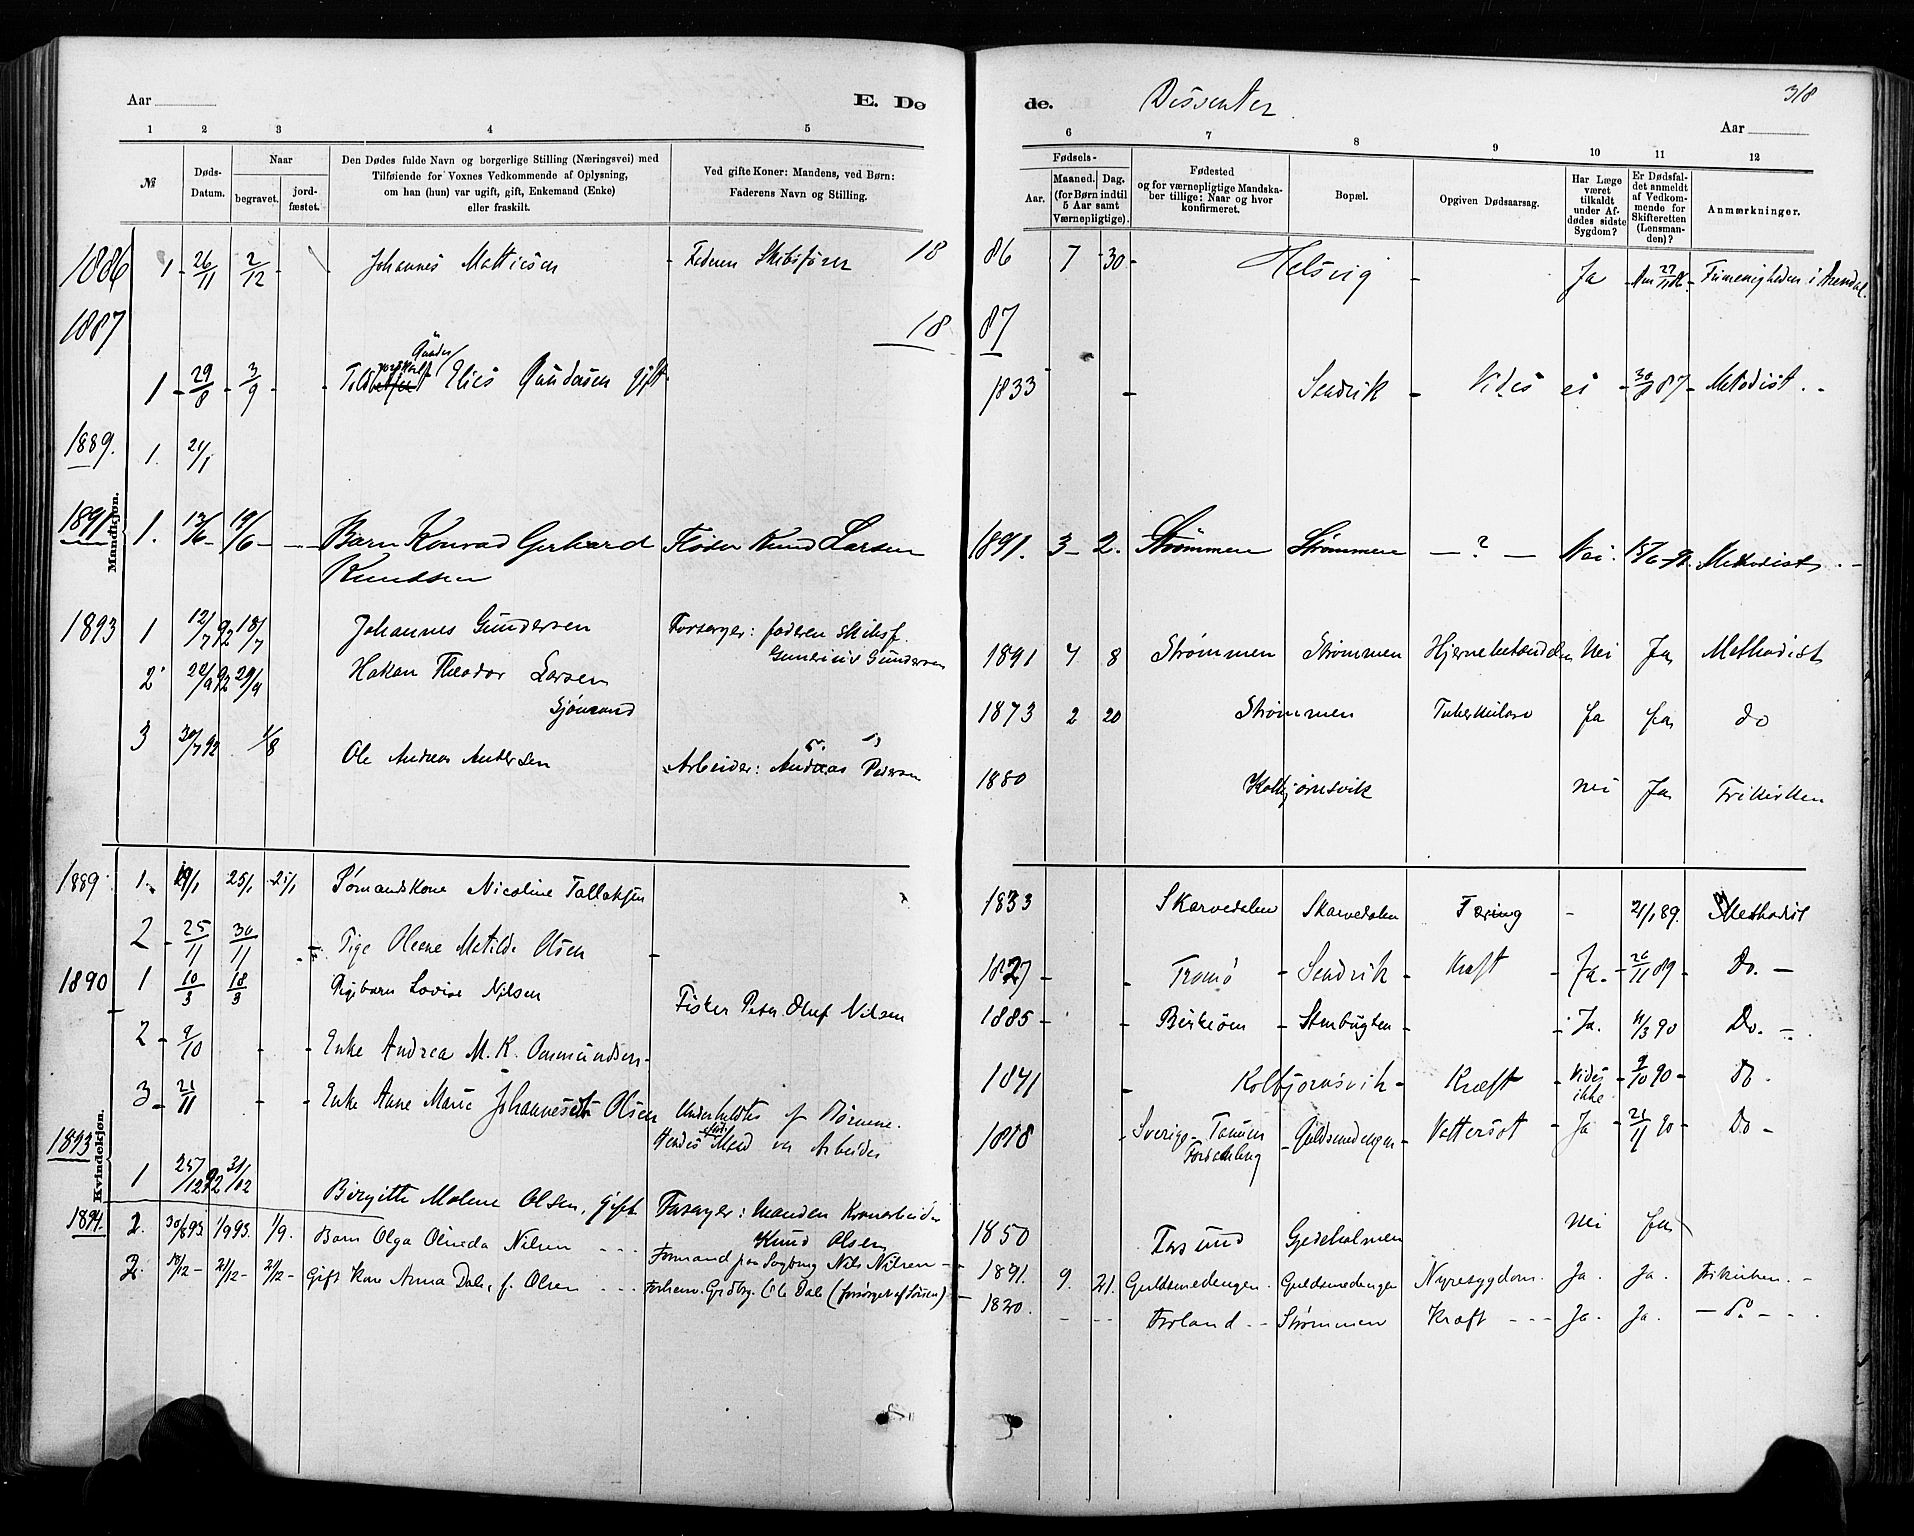 Aar
E. Dø
de.
Dissenter
318
Aar
1 2 3 4 5 6 7 8 9 10 11 12
№
Døds-Datum.
Naar
begravet.
jord-fæstet.
Den Dødes fulde Navn og borgerlige Stilling (Næringsvei) med
Tilføiende for Voxnes Vedkommende af Oplysning,
om han (hun) var ugift, gift, Enkemand (Enke)
eller fraskilt.
Ved gifte Koner: Mandens, ved Børn:
Faderens Navn og Stilling.
Fødsels-
Aar.
Maaned. Dag.
(for Børn indtil
5 Aar samt
Værnepligtige).
Fødested
og for værnepligtige Mandska-
ber tillige: Naar og hvor
konfirmeret.
Bopæl.
Opgiven Dødsaarsag.
Har Læge
været
tilkaldt
under Af-
dødes sidste
Sygdom?
Er Dødsfal-
det anmeldt
af Vedkom-
mende for
Skifteretten
(Lensman-
den)?
Anmærkninger.
Mandkjøn.
1886 1 26/11 2/12 Johannes Mathiesen Faderen Skibsfører 18 86 7 30 Helsvig Ja 27/11 86. Frimenigheden i Arendal.
1887 18 87
1 29/8 3/9 Elies gift 1833 Sandvik Vides ei 30/8 87 Metodist.
1889. 1. 21/1
1891 1. 13/6 19/6 Barn Konrad Gerhard Fader Knud Larsen 1891. 3 2. Strømmen Strømmen ? Nei. 15/6 91. Methodist.
Knudsen
1893 1 12/7 92 18/7 Johannes Gundersen Forsørger: faderen skibsf.
Gundersen 1891 4 8 Strømmen Strømmen Hjernebetændelse Nei Ja Methodist
2 24/9 92 29/9 Hakon Theodor Larsen
1873 2 20 Strømmen Tuberkulose Ja Ja do
3 30/7 92 1/8 Ole Andreas Andersen Arbeider: Andreas Pedersen 1880 Kolbjørnsvik nei Ja Frikirken
Kvindekjøn.
1889 1. 19/1 25/1 25/1 Sømandskone Nicoline Tallaksen 1833 Skarvedalen Skarvedalen Tæring - 21/1 89. Methodist
2 25/11 30/11 Pige Olene Matilde Olsen 1827 Tromø Sandvik Kræft Ja. 26/11 89 Do.
1890 1 10/3 18/3 Pigebarn Lovise Nilsen Fisker Peter Oluf Nilsen 1885 Birkeøen Stubugten Ja. 11/3 90 Do.
2 9/10 Enke Andrea M. K. Osmundsen 1841 Kolbjørnsvik Kræft Vides ikke 9/10 90 do.
3 21/11 Enke Anne Marie Johannesen Olsen Underholdtes af Børnene.
Hendes Mand var Arbeider 1818 Sverige Guldsmedengen Vattersot Ja 21/11 90 Do
1893 1 25/12 92 31/12 Birgitte Malene Olsen, gift Forsørger: Manden Kranarbeider
Knud Olsen 1850 Farsund Gjedeholmen nei Ja
1894. 2. 30/8 93. 1/9 93. 1/9. Barn Olga Olneda Nilsen Formand paa Sagbrug Nils Nilsen 1891. 9. 21. Guldsmedengen. Guldsmedengen Nyresygdom. Ja. Ja. Frikirken.
Gift Kone Anna Dale, f. Olsen Forhenv. Grdbrg. Ole Dale 1820. Froland Strømmen Kræft Ja. Ja. do.